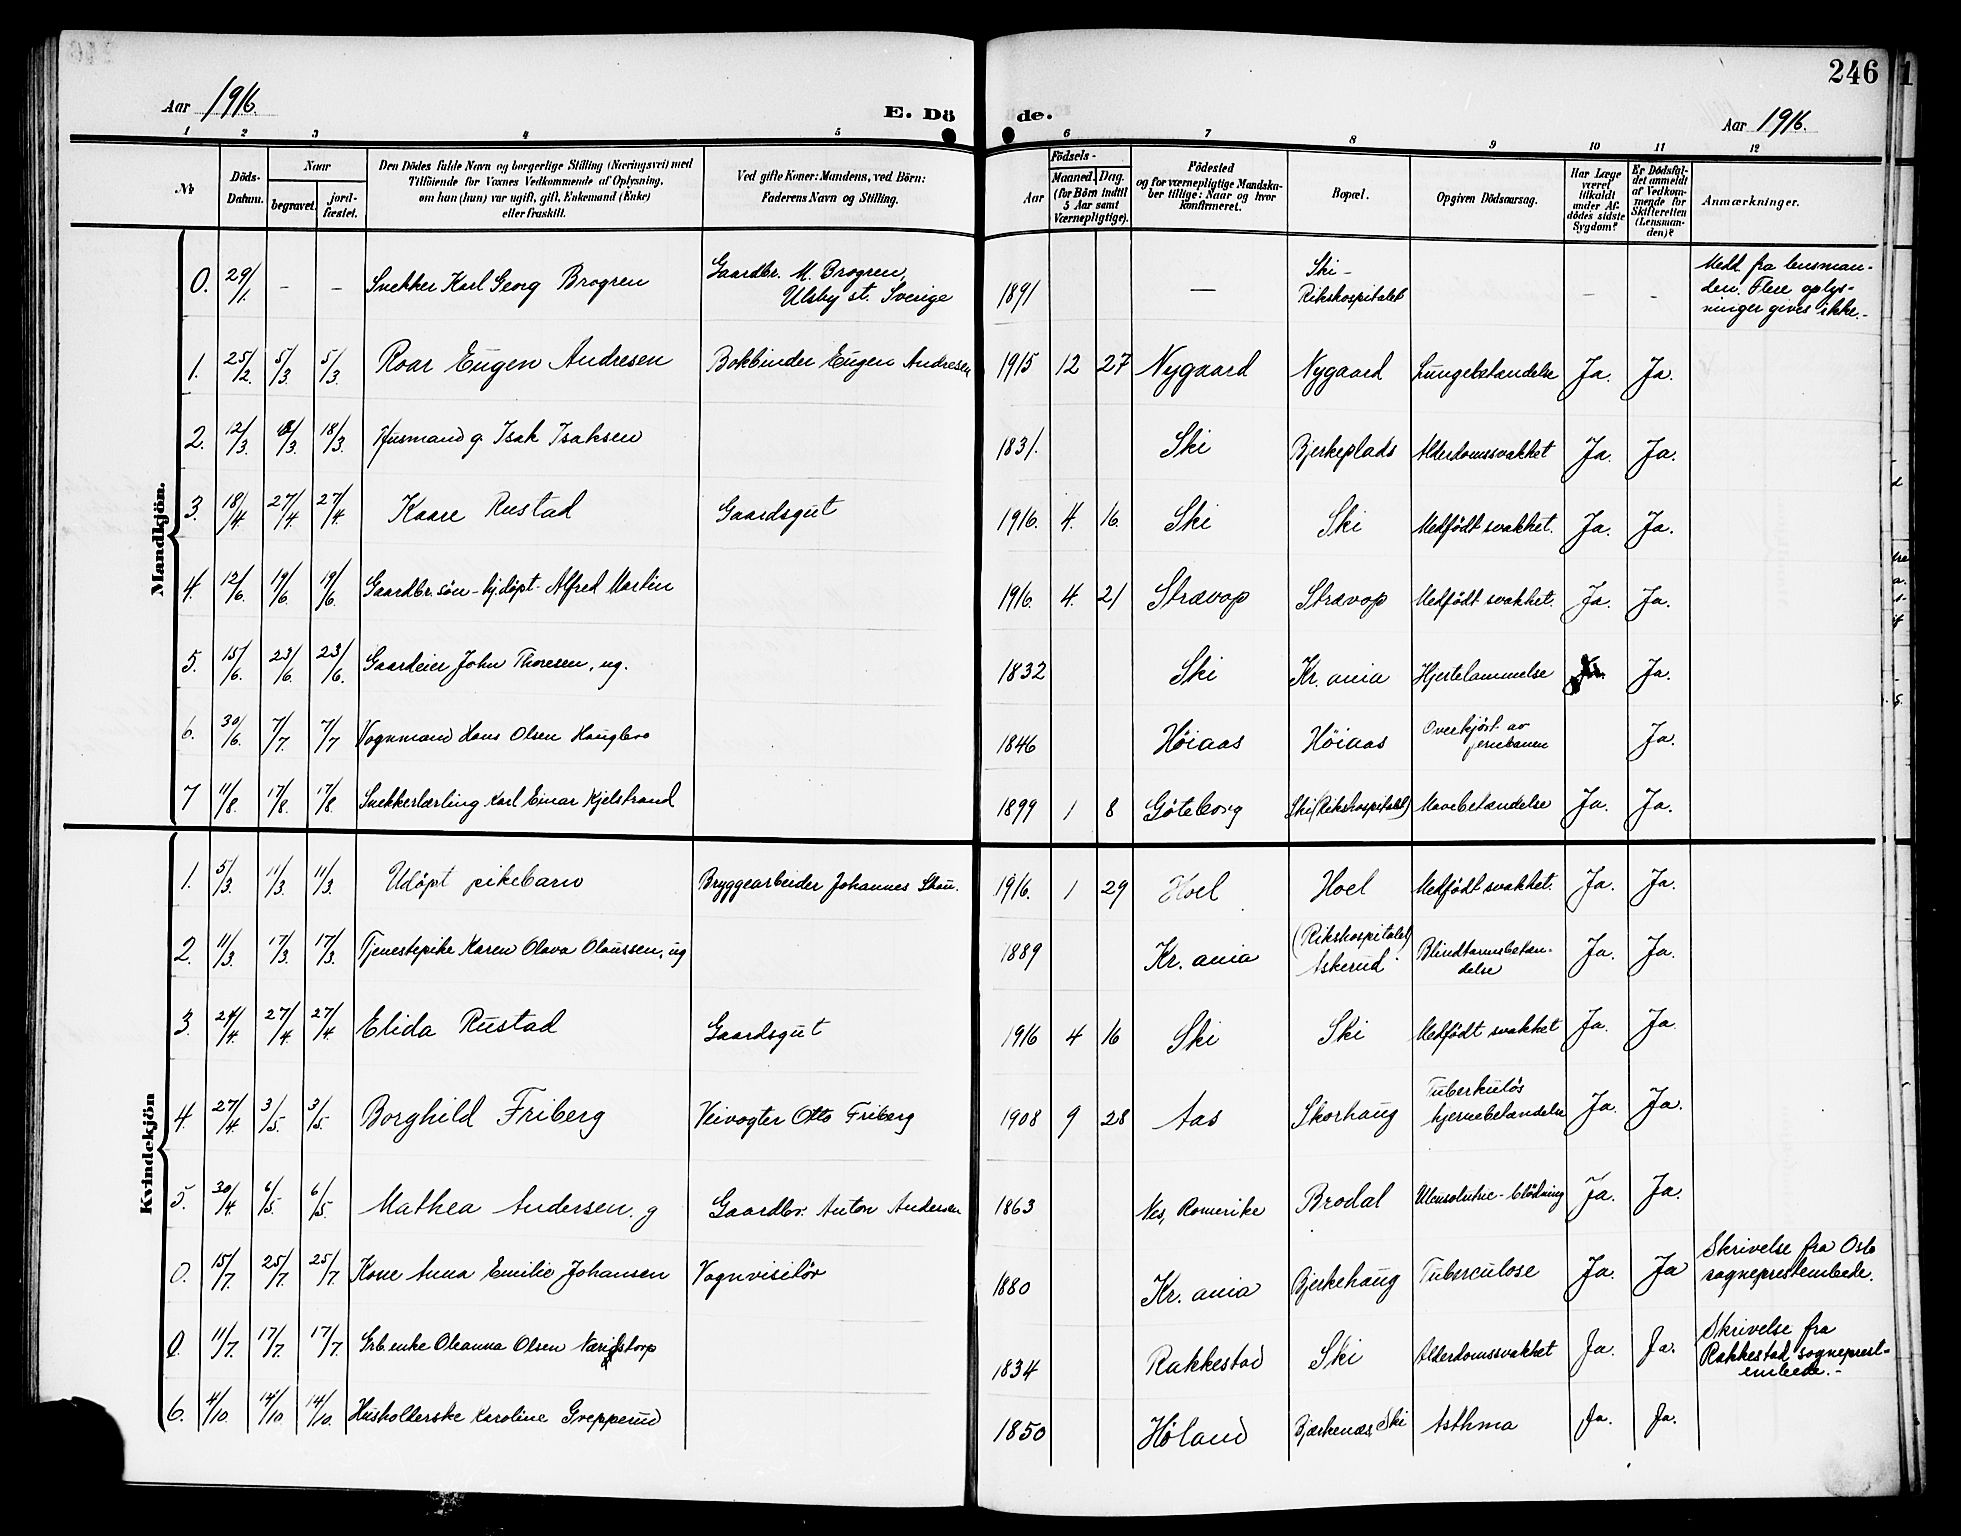 246
Aar 1916.
E. Dö de.
Aar 1916.
1 2 3 4 5 6 7 8 9 10 11 12
No
Döds-
Datum.
Naar
begravet.
jord-
fæstet.
Den Dödes fulde Navn og borgerlige Stilling (Næringsvei) med
Tilföiende for Voxnes Vedkommende af Oplysning,
om han (hun) var ugift, gift, Enkemand (Enke)
eller fraskilt.
Ved gifte Koner: Mandens, ved Börn:
Faderens Navn og Stilling.
Födsels-
Aar
Maaned. Dag.
(for Börn indtil
5 Aar samt
Værnepligtige).
Födested
og for værnepligtige Mandska-
ber tillige: Naar og hvor
konfirmeret.
Bopæl.
Opgiven Dödsaarsag.
Har Læge
været
tilkaldt
under Af-
dödes sidste
Sygdom?
Er Dödsfal-
det anmeldt
af Vedkom-
mende for
Skifteretten
(Lensman-
den)?
Anmærkninger.
Mandkjön.
0. 29/1. - - Snekker Karl Georg Brogren Gaardbr. M. Brogren, Ulsby st. Sverige 1891 — Ski - Rikshospitalet - - Medd. fra lensman-
den. Flere oplys-
ninger gives ikke.-
1. 25/2. 5/3. 5/3. Roar Eugen Andresen Bokbinder Eugen Andresen 1915 12 27 Nygaard Nygaard Lungebetændelse Ja. Ja.
2. 12/3. 18/3. 18/3. Husmand g. Isak Isaksen 1831. Ski Bjerkeplads Alderdomssvakhet Ja. Ja.
3. 18/4. 27/4. 27/4. Kaare Rustad Gaardsgut 1916. 4. 16. Ski Ski Medfödt svakhet. Ja. Ja.
4. 12/6. 19/6. 19/6. Gaardbr. sön - hj.döpt - Alfred Martin 1916. 4. 21 Stravop Stravop Medfödt svakhet. Ja. Ja.
5. 15/6. 23/6. 23/6. Gaardeier John Thoresen, ug. 1832 Ski Kr. ania Hjertelammelse Ja.
6. 30/6. 7/7. 7/7 Vognmand Hans Olsen Haugbro 1846 Höiaas Höiaas Overkjört av
jernbanen Ja.
7 11/8. 17/8. 17/8. Snekkerlærling Karl Einar Kjelstrand 1899 1 8 Göteborg Ski (Rikshospitalet) Mavebetændelse Ja. Ja.
Kvindekjön
1. 5/3. 11/3. 11/3. Udöpt pikebarn Bryggearbeider Johannes Skau. 1916. 1 29 Hoel Hoel Medfödt svakhet. Ja. Ja.
2. 11/3. 17/3. 17/3. Tjenestepike Karen Olava Olaussen, ug 1889 Kr. ania (Rikshospitalet)
Askerud Blindtarmsbetæn-
delse Ja. Ja.
3. 24/4. 27/4. 27/4. Elida Rustad Gaardsgut 1916 4 16 Ski Ski Medfödt svakhet Ja. Ja.
4. 27/4. 3/5. 3/5. Borghild Friberg Veivogter Otto Friberg 1908 9 28 Aas Skorhaug Tuberkulös
hjernebetændelse Ja. Ja.
5. 30/4. 6/5. 6/5. Mathea Andersen. g Gaardbr. Anton Andersen 1863 Nes, Romerike Brodal blödning Ja. Ja.
0. 15/7. 25/7. 25/7. Kone Anna Emilie Johansen Vognvisitör 1880 Kr. ania Bjerkehaug Tuberculose Ja. Ja Skrivelse fra Oslo
sogneprestembede.
0. 11/7. 17/7. 17/7. Grb.enke Oleanna Olsen 1834 Rakkestad Ski Alderdomssvakhet Ja. Ja. Skrivelse fra
Rakkestad sogneprest-
embede.-
6. 4/10. 14/10 14/10. Husholderske Karoline Grepperud 1850 Höland Bjerkenæs, Ski Asthma Ja. Ja.